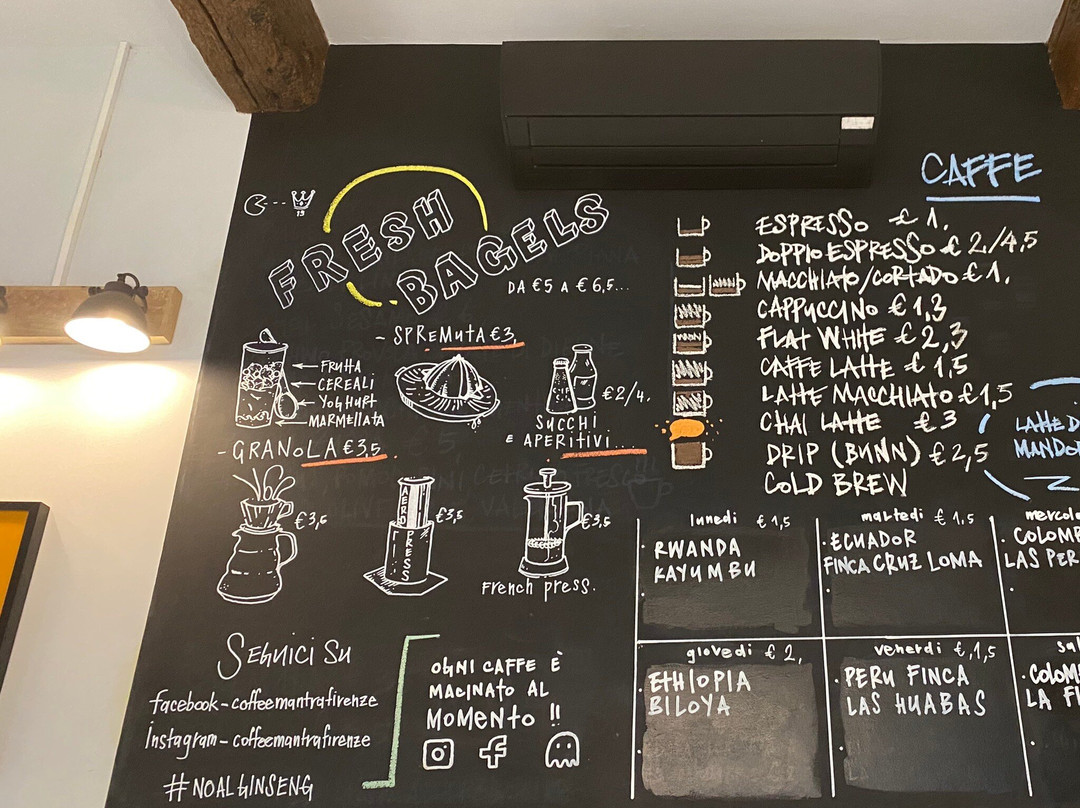 19
FRESH
BAGELS
DA €5 A € 6,5...
- SPREMUTA €3,
FRUTTA
CEREALI
YOGHURT
MARMELLATA
- GRANOLA €3,5
€2/4.
SUCCHI
E APERITIVI...
€3,5
AERO
PRESS
€3,5
€3,5
French press.
SEGUICI SU
facebook - coffeemantrafirenze
Instagram - coffeemantrafirenze
#NOALGINSENG
OGNI CAFFE È
MACINATO AL
MOMENTO !!
CAFFE
ESPRESSO € 1.
DOPPIO ESPRESSO € 2./4,5
MACCHIATO/CORTADO € 1.
CAPPUCCINO € 1,3
FLAT WHITE € 2,3
CAFFE LATTE € 1,5
LATTE MACCHIATO € 1,5
CHAI LATTE € 3
DRIP (BUNN) € 2,5
COLD BREW
LATTE D
MANDO
lunedi € 1,5
RWANDA
KAYUMBU
martedi € 1,5
ECUADOR
FINCA CRUZ LOMA
mercole
COLOM
LAS PER
giovedi € 2,
ETHIOPIA
BILOYA
venerdi €,1,5
PERU FINCA
LAS HUABAS
sa
COLOM
LA F